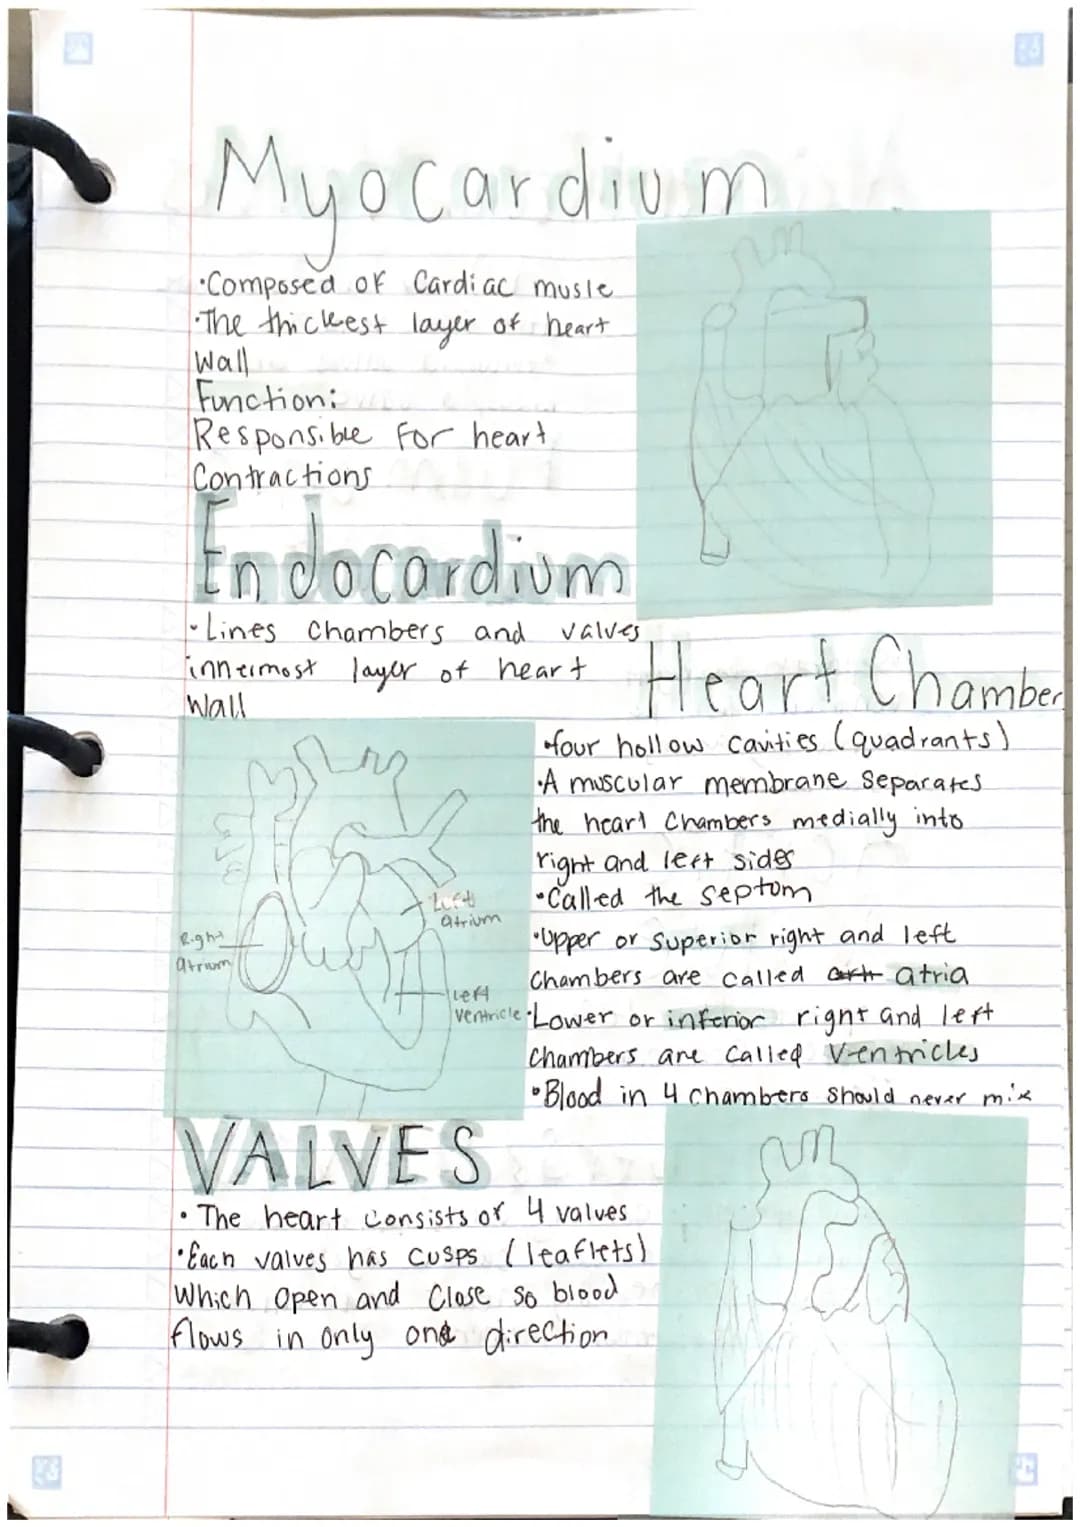 Myocardium
·Composed of Cardiac musle
·The thickest layer of heart
Wall
Function:
Responsible For heart
Contractions
Endocardium
·Lines Chambers and valves
innermost layer of heart
Wall
Heart Chamber
·four hollow cavities (quadrants)
·A muscular membrane Separates
the heart Chambers medially into
right and left sides
·Called the septum
·Upper or Superior right and left
Chambers are called atria
·Lower or inferior right and left
Chambers are Called Ventricles
·Blood in 4 chambers should never mix
Right
atrium
Left
atrium
Left
Ventricle
VALVES
·The heart consists of 4 valves
·Each valves has cusps (leaflets)
Which open and Close so blood
flows in only one direction